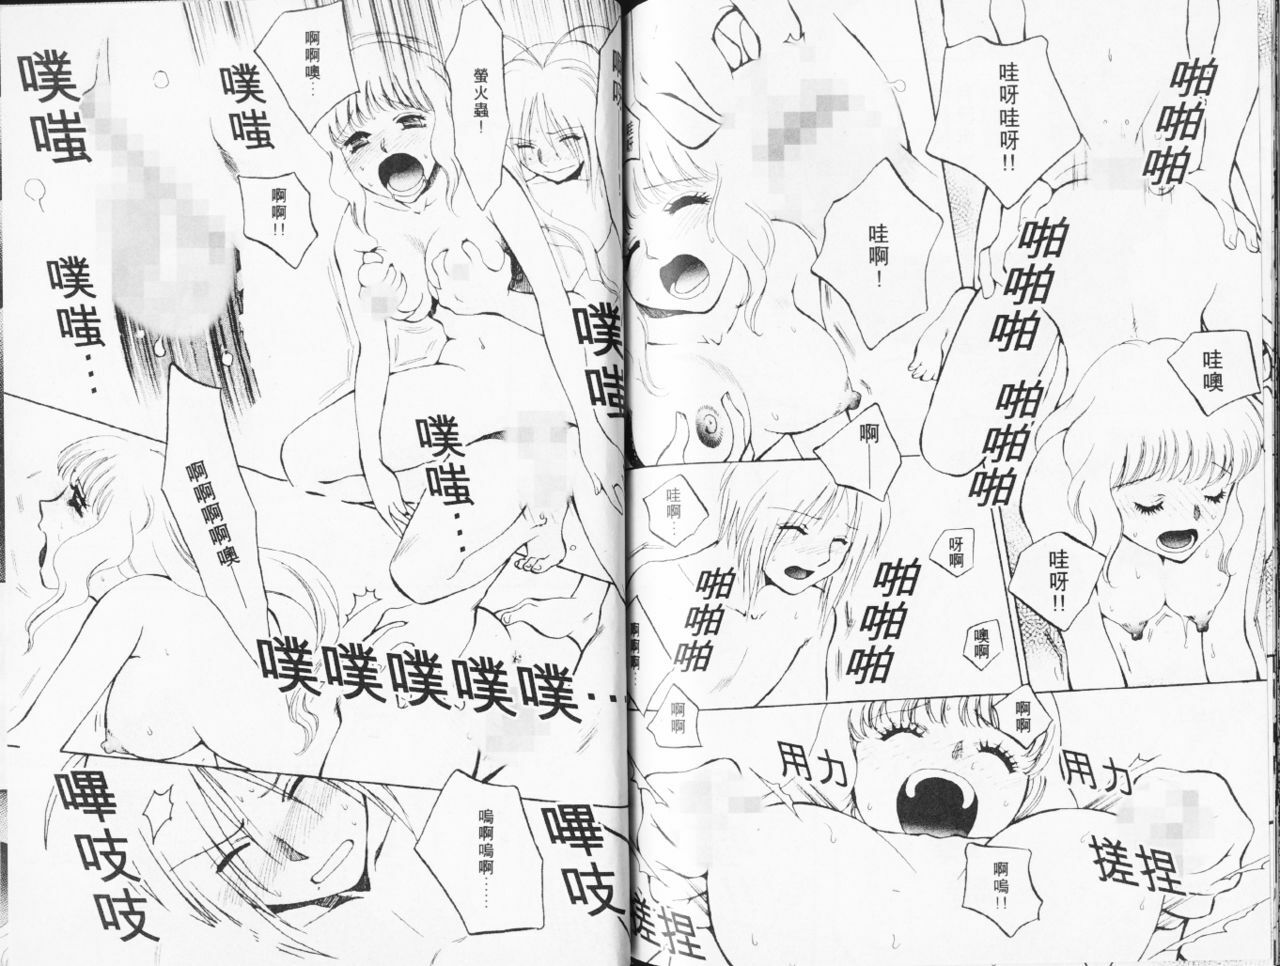 啪啪啪
哇呀哇呀!!
啪啪啪
哇啊！
啪啪啪
哇噢
啊
哇呀!!
哇啊…
呀啊
啪啪啪
啪啪啪
噢啊
啊啊
啊啊
用力
用力
搓捏
搓捏
啊嗚!!
螢火蟲！
啊啊噢…
噗嗤
噗嗤
啊啊!!
噗嗤…
噗嗤
噗嗤…
啊啊啊啊噢
噗噗噗噗噗…
嗶吱吱
嗚啊嗚啊……
嗶吱